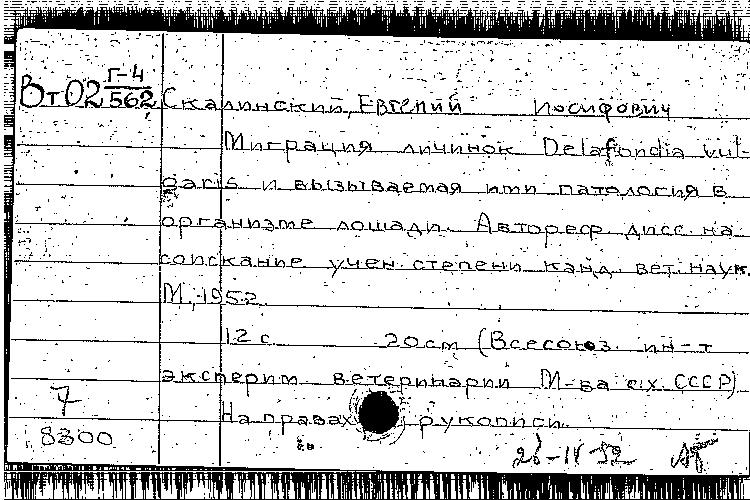 Вт02 Г-4/562
Скалинский, Евгений Иосифович
Миграция личинок Delafondia vul-
garis и вызываемая ими патология в
организме лошади. Автореф. дисс. на
соискание учен. степени канд. вет. наук.
М., 1952.
12 с. 20 см (Всесоюз. ин-т
эксперим. ветеринарии М-ва с.х. СССР)
На правах рукописи.
7
8300